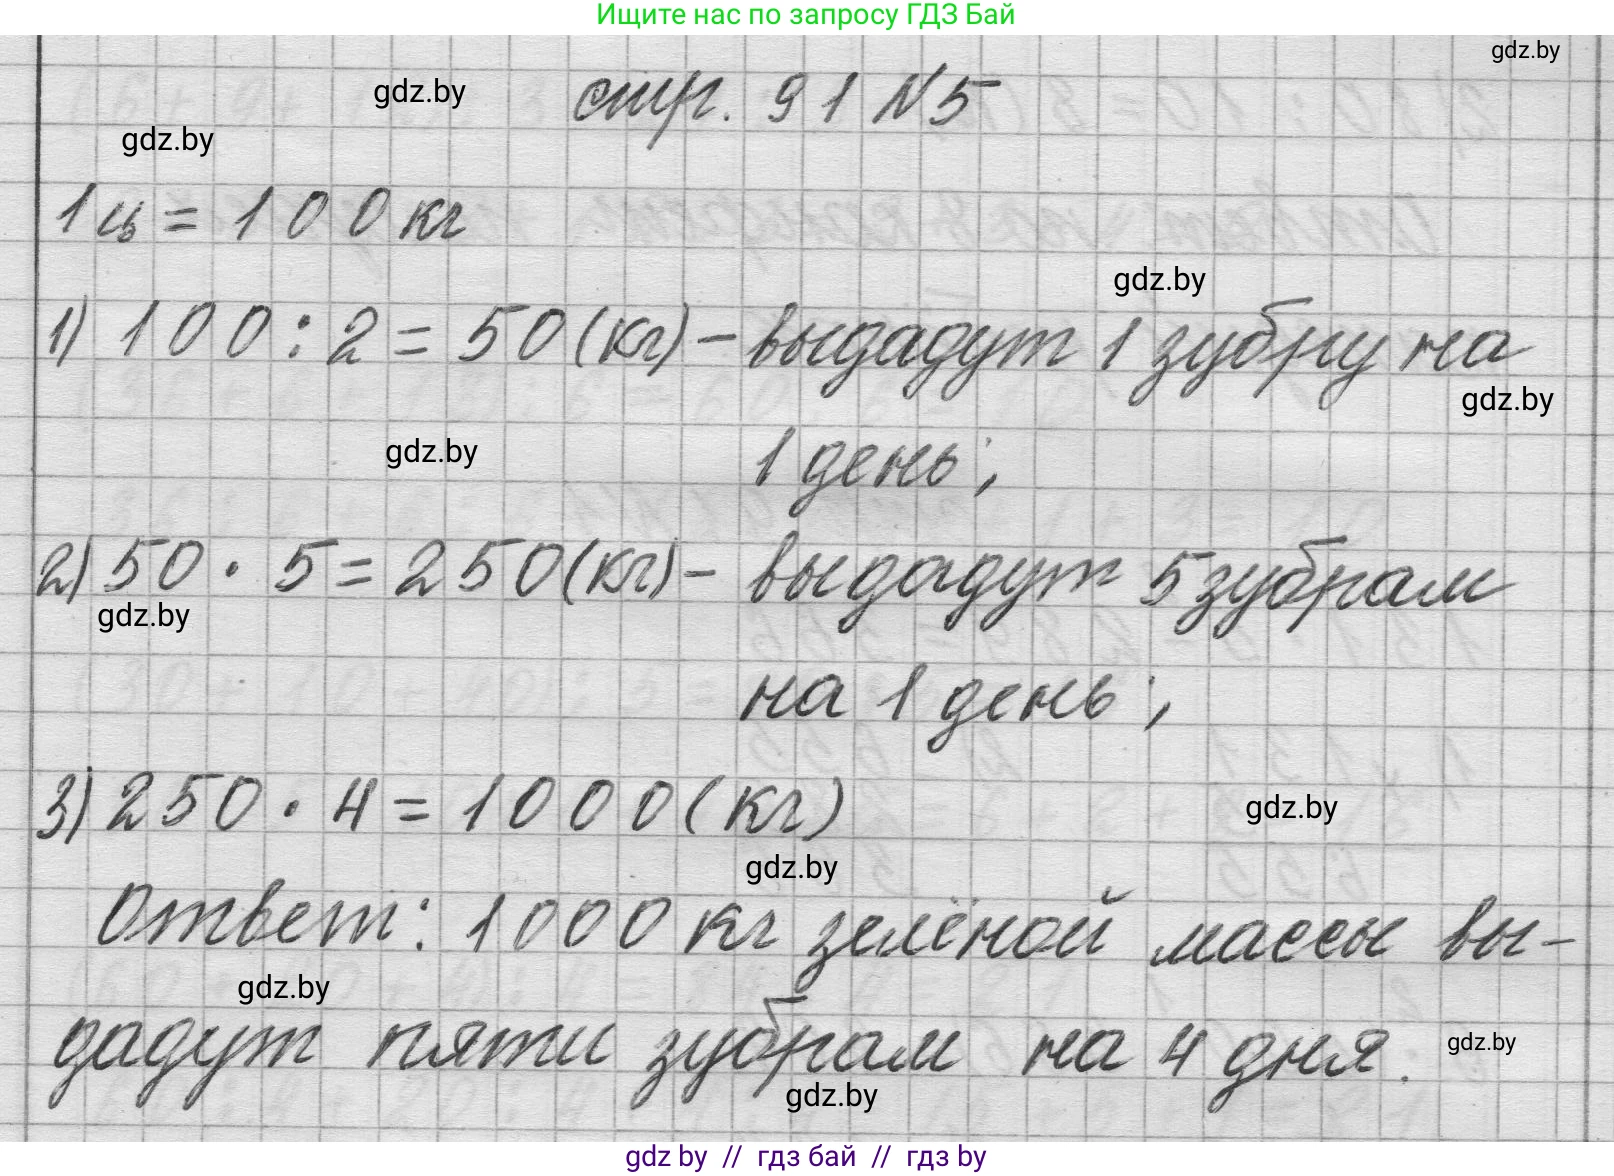 Ищите нас по запросу ГДЗ Бай
gdz.by
gdz.by
стр. 91 №5
gdz.by
1 ц = 100 кг
gdz.by
1) 100 : 2 = 50 (кг) – выдадут 1 зубру на
gdz.by
gdz.by
1 день;
2) 50 · 5 = 250 (кг) – выдадут 5 зубрам
gdz.by
на 1 день;
3) 250 · 4 = 1000 (кг)
gdz.by
gdz.by
Ответ: 1000 кг зелёной массы вы-
gdz.by
дадут пяти зубрам на 4 дня.
gdz.by
gdz.by
gdz by // гдз бай // гдз by